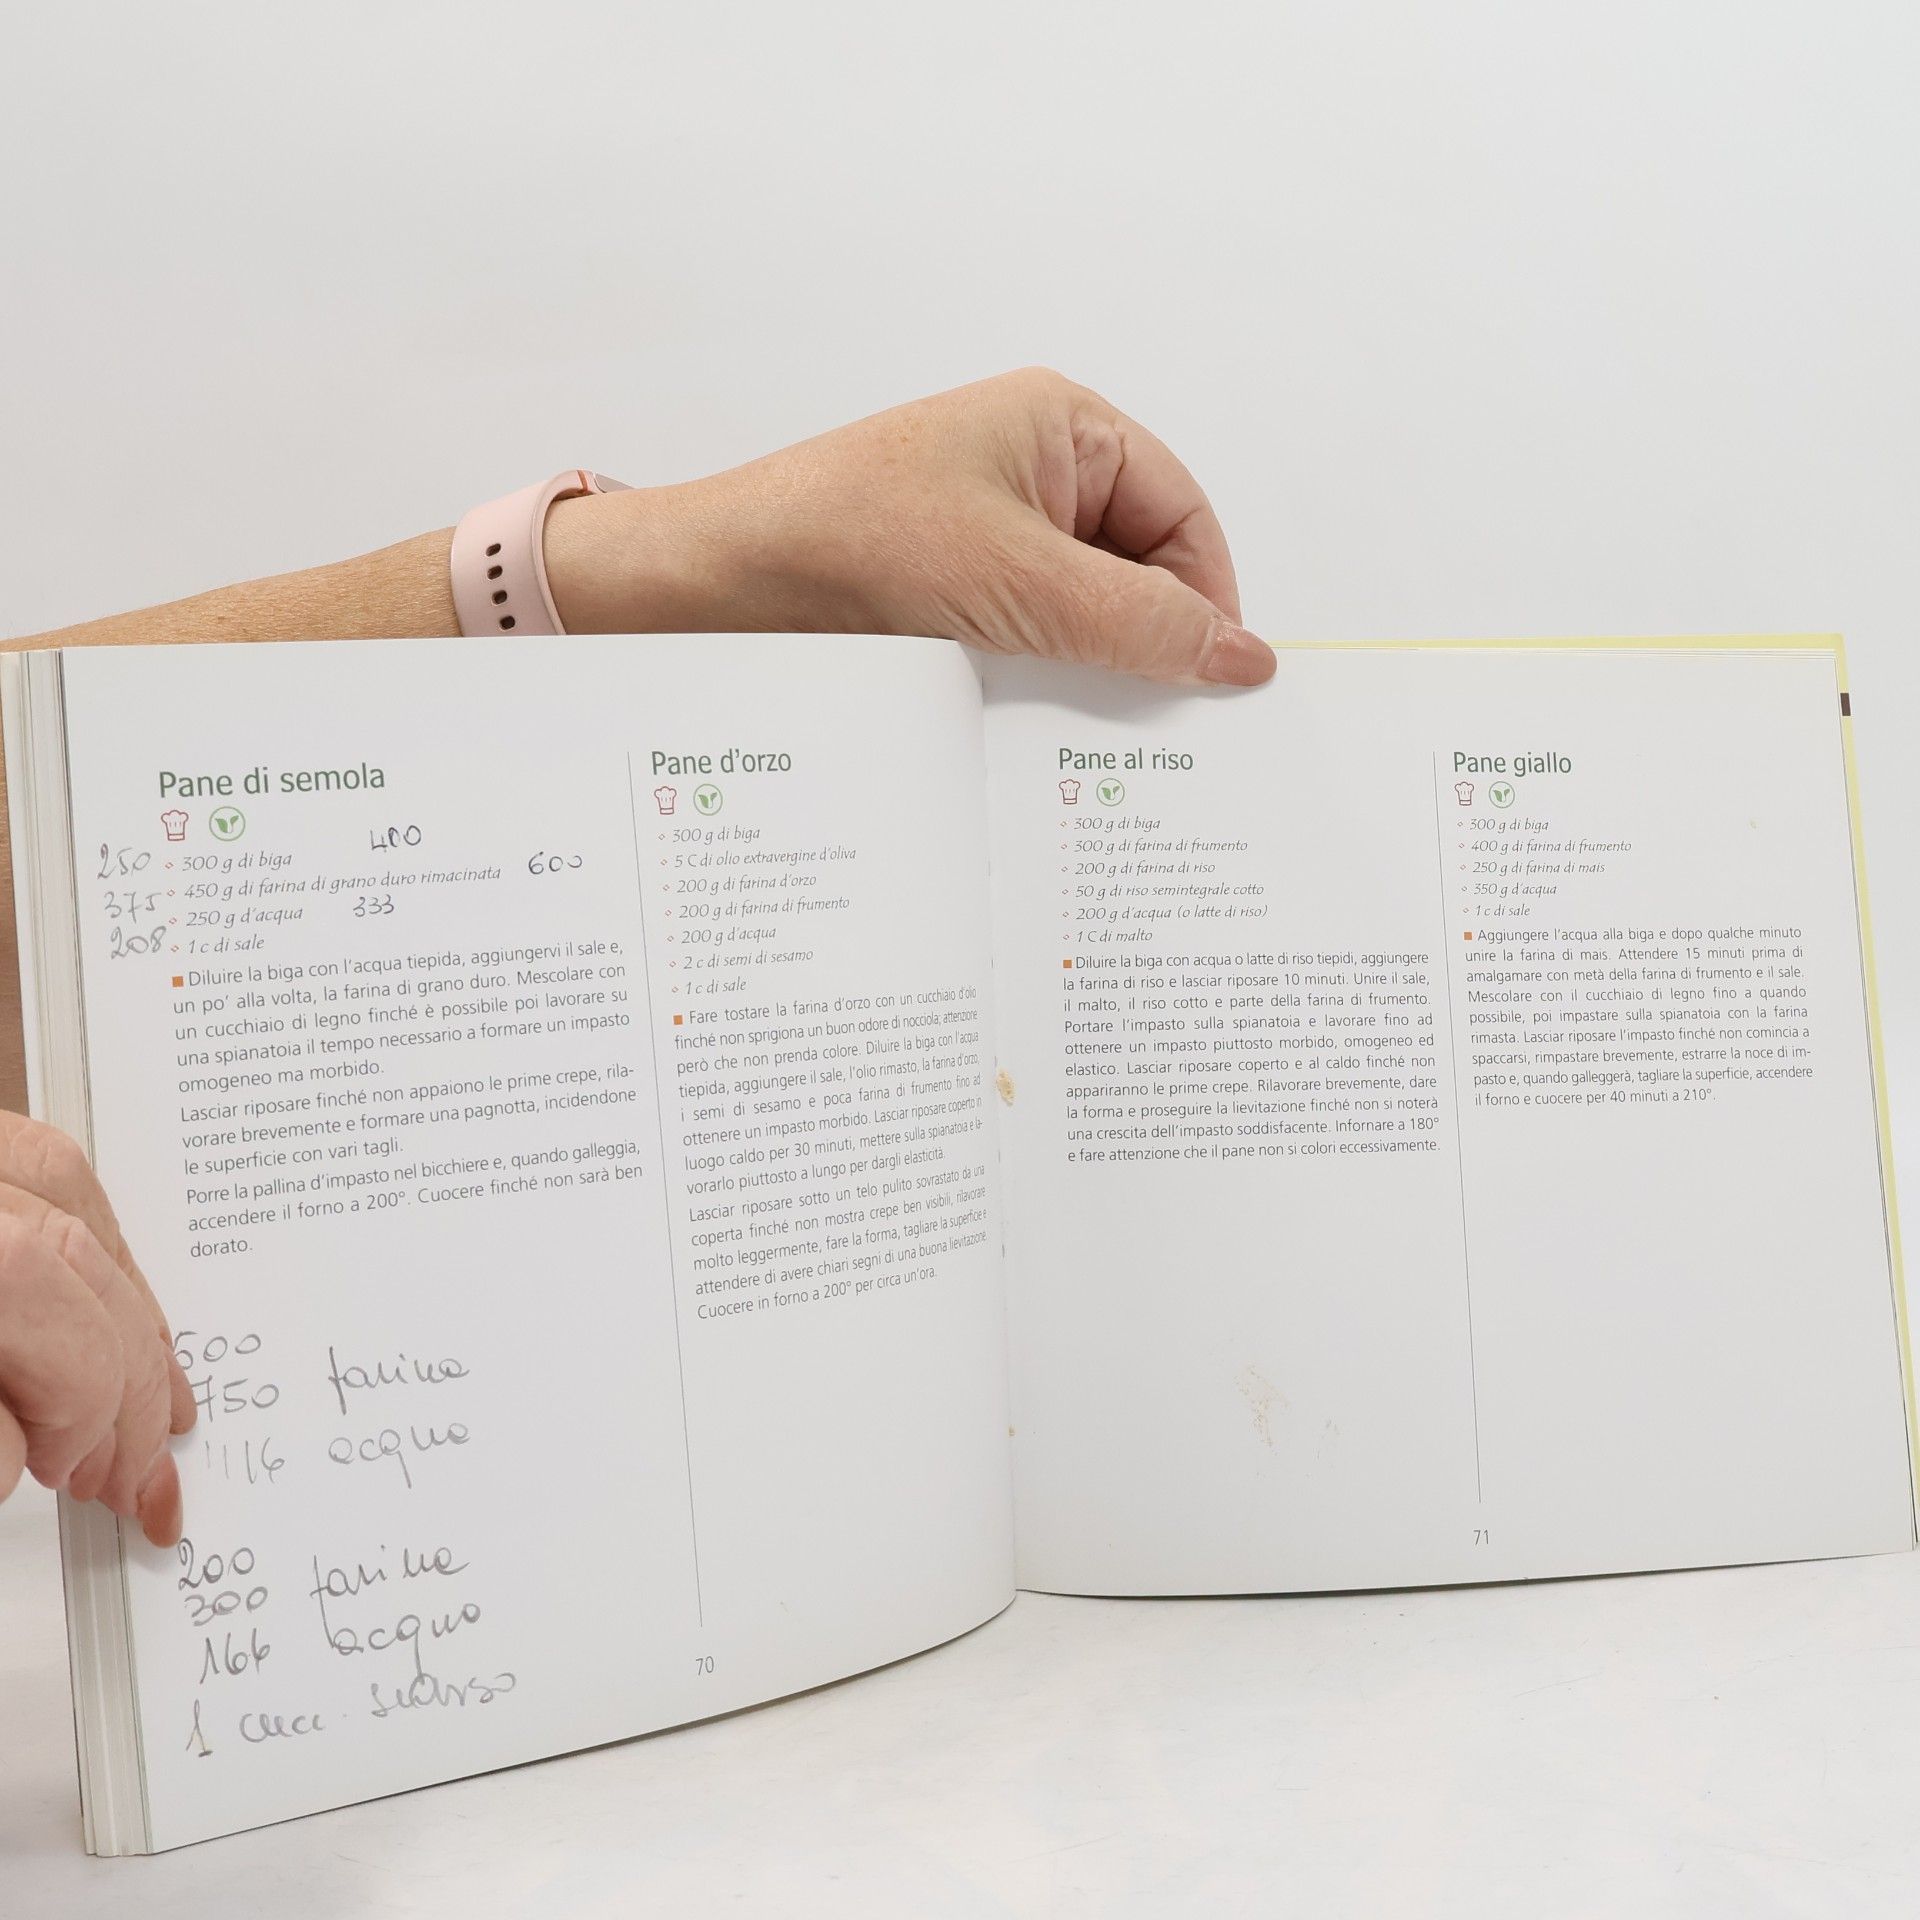 Pane di semola
400
250 300 g di biga
450 g di farina di grano duro rimacinata 600
375
250 g d'acqua 333
208 1 c di sale
Diluire la biga con l'acqua tiepida, aggiungervi il sale e,
un po' alla volta, la farina di grano duro. Mescolare con
un cucchiaio di legno finché è possibile poi lavorare su
una spianatoia il tempo necessario a formare un impasto
omogeneo ma morbido.
Lasciar riposare finché non appaiono le prime crepe, rila-
vorare brevemente e formare una pagnotta, incidendone
le superficie con vari tagli.
Porre la pallina d'impasto nel bicchiere e, quando galleggia,
accendere il forno a 200°. Cuocere finché non sarà ben
dorato.
500
750 farina
416 acqua
200
300 farina
166 acqua
1 cucc. scarso
Pane d'orzo
300 g di biga
5 C di olio extravergine d'oliva
200 g di farina d'orzo
200 g di farina di frumento
200 g d'acqua
2 c di semi di sesamo
1 c di sale
Fare tostare la farina d'orzo con un cucchiaio d'olio
finché non sprigiona un buon odore di nocciola; attenzione
però che non prenda colore. Diluire la biga con l'acqua
tiepida, aggiungere il sale, l'olio rimasto, la farina d'orzo,
i semi di sesamo e poca farina di frumento fino ad
ottenere un impasto morbido. Lasciar riposare coperto in
luogo caldo per 30 minuti, mettere sulla spianatoia e la-
vorarlo piuttosto a lungo per dargli elasticità.
Lasciar riposare sotto un telo pulito sovrastato da una
coperta finché non mostra crepe ben visibili, rilavorare
molto leggermente, fare la forma, tagliare la superficie e
attendere di avere chiari segni di una buona lievitazione.
Cuocere in forno a 200° per circa un'ora.
70
Pane al riso
300 g di biga
300 g di farina di frumento
200 g di farina di riso
50 g di riso semintegrale cotto
200 g d'acqua (o latte di riso)
1 C di malto
Diluire la biga con acqua o latte di riso tiepidi, aggiungere
la farina di riso e lasciar riposare 10 minuti. Unire il sale,
il malto, il riso cotto e parte della farina di frumento.
Portare l'impasto sulla spianatoia e lavorare fino ad
ottenere un impasto piuttosto morbido, omogeneo ed
elastico. Lasciar riposare coperto e al caldo finché non
appariranno le prime crepe. Rilavorare brevemente, dare
la forma e proseguire la lievitazione finché non si noterà
una crescita dell'impasto soddisfacente. Infornare a 180°
e fare attenzione che il pane non si colori eccessivamente.
Pane giallo
300 g di biga
400 g di farina di frumento
250 g di farina di mais
350 g d'acqua
1 c di sale
Aggiungere l'acqua alla biga e dopo qualche minuto
unire la farina di mais. Attendere 15 minuti prima di
amalgamare con metà della farina di frumento e il sale.
Mescolare con il cucchiaio di legno fino a quando
possibile, poi impastare sulla spianatoia con la farina
rimasta. Lasciar riposare l'impasto finché non comincia a
spaccarsi, rimpastare brevemente, estrarre la noce di im-
pasto e, quando galleggerà, tagliare la superficie, accendere
il forno e cuocere per 40 minuti a 210°.
71